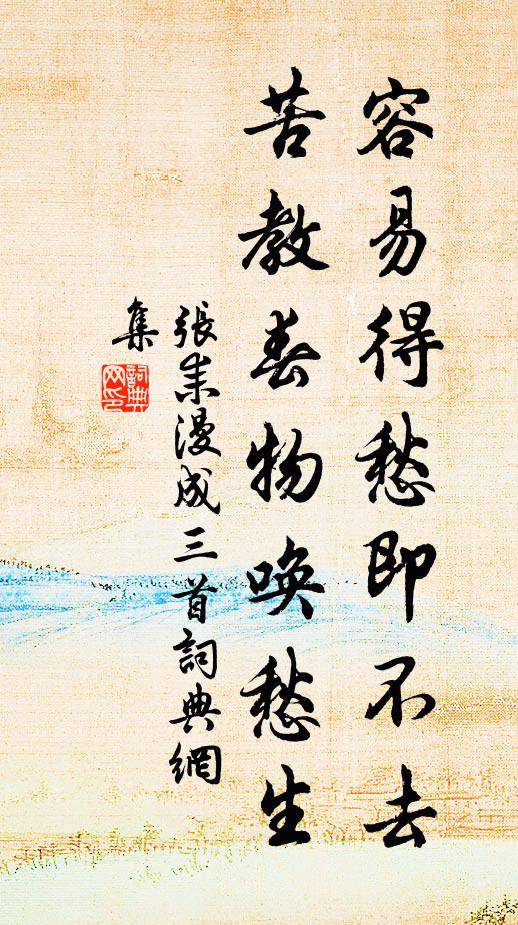 容易得愁即不去
苦教春物喚愁生
張耒漫成三首詞典網
集
詞典
网印